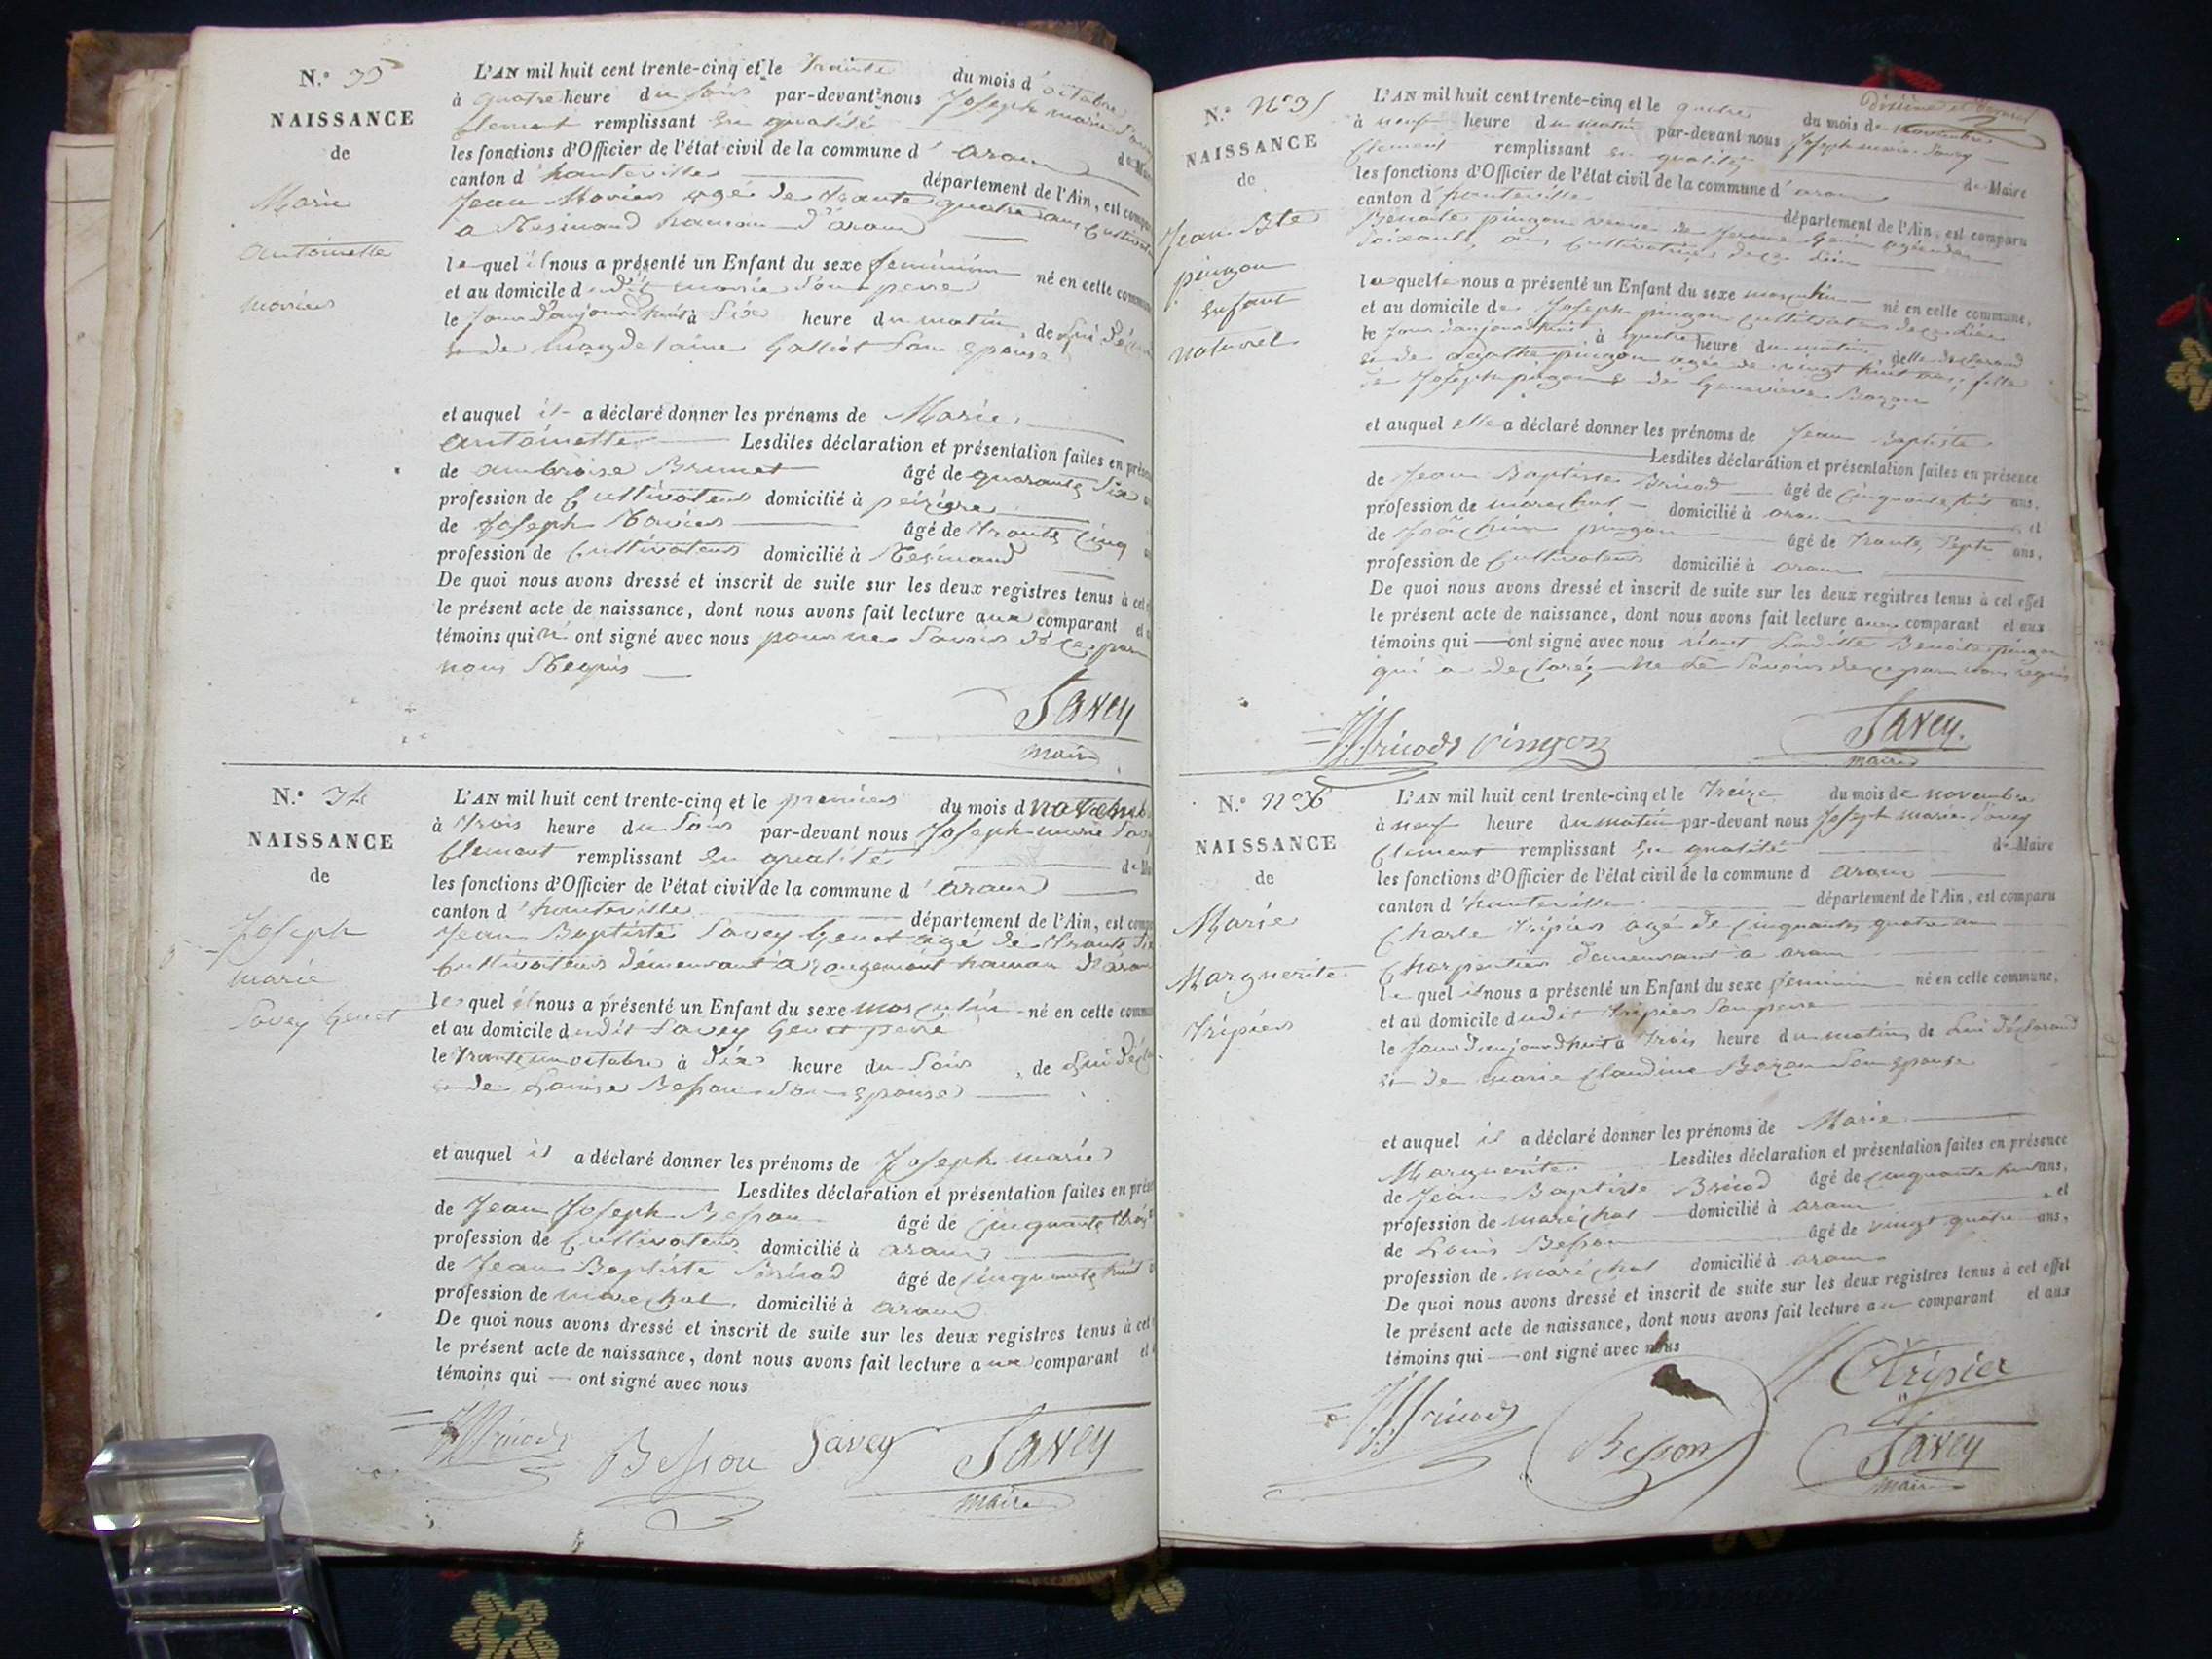 N.º 33
NAISSANCE
de
Marie
antoinette
L'AN mil huit cent trente-cinq et le trante du mois d'octobre
à quatre heure du soir par-devant nous Joseph marie
Clement remplissant en qualité de Maire
les fonctions d'Officier de l'état civil de la commune d' aran
canton d' hauteville département de l'Ain, est comparu
Jean agé de trante quatre ans
hamau d'aran
lequel il nous a présenté un Enfant du sexe feminim né en cette commune
et au domicile dudit son pere
le jour d'aujourdhui à six heure du matin, de lui
et de magdelaine Galliot son epouse
et auquel il a déclaré donner les prénoms de Marie
antoinette Lesdites déclaration et présentation faites en
de ambroise Brunet âgé de quarante six
profession de Cultivateur domicilié à
de Joseph âgé de trante cinq
profession de Cultivateur domicilié à
De quoi nous avons dressé et inscrit de suite sur les deux registres tenus à cet
le présent acte de naissance, dont nous avons fait lecture aux comparant et
témoins qui n' ont signé avec nous pour ne savoir de ce par
nous Requis
Savey
maire
N.º 34
NAISSANCE
de
Joseph
marie
Savey Genet
L'AN mil huit cent trente-cinq et le premier du mois d novembre
à trois heure du soir par-devant nous Joseph marie Savey
Clement remplissant en qualité de
les fonctions d'Officier de l'état civil de la commune d' aran
canton d' hauteville département de l'Ain, est
Jean Baptiste Savey Genet agé de trante
Cultivateur demeurant à hamau d'aran
lequel il nous a présenté un Enfant du sexe masculin né en cette
et au domicile dudit Savey Genet pere
le trante un octobre à dix heure du soir, de lui
et de Louise Besson son epouse
et auquel il a déclaré donner les prénoms de Joseph marie
Lesdites déclaration et présentation faites en
de Jean Joseph Besson âgé de cinquante trois
profession de Cultivateur domicilié à aran
de Jean Baptiste Bricod âgé de cinquante huit
profession de marechal domicilié à aran
De quoi nous avons dressé et inscrit de suite sur les deux registres tenus à cet
le présent acte de naissance, dont nous avons fait lecture aux comparant et
témoins qui ont signé avec nous
Besson Savey Savey
maire
N.º nº35
NAISSANCE
de
Jean Bte
pingon
Enfant
naturel
L'AN mil huit cent trente-cinq et le quatre du mois de novembre
à neuf heure du matin par-devant nous Joseph marie Savey
Clement remplissant en qualité de Maire
les fonctions d'Officier de l'état civil de la commune d' aran
canton d' hauteville département de l'Ain, est comparu
Benoite pingon veuve de Jerome agée de
soixante ans Cultivatrice de ce lieu
laquelle nous a présenté un Enfant du sexe masculin né en cette commune,
et au domicile de Joseph pingon Cultivateur de ce lieu
le jour d'aujourdhui à quatre heure du matin, delle declarand
et de agathe pingon agée de vingt huit ans, fille
de Joseph pingon & de Genevieve Bozon
et auquel elle a déclaré donner les prénoms de Jean Baptiste
Lesdites déclaration et présentation faites en présence
de Jean Baptiste Bricod âgé de cinquante huit ans,
profession de marechal domicilié à aran et
de Joachim pingon âgé de trante sept ans,
profession de Cultivateur domicilié à aran
De quoi nous avons dressé et inscrit de suite sur les deux registres tenus à cet effet
le présent acte de naissance, dont nous avons fait lecture aux comparant et aux
témoins qui ont signé avec nous Ladite Benoite pingon
qui a declaré ne le savoir de ce par nous requis
pingon Savey.
maire
N.º nº36
NAISSANCE
de
Marie
Marguerite
Tripier
L'AN mil huit cent trente-cinq et le treize du mois de novembre
à neuf heure du matin par-devant nous Joseph marie Savey
Clement remplissant en qualité de Maire
les fonctions d'Officier de l'état civil de la commune d aran
canton d' hauteville département de l'Ain, est comparu
Charle tripier agé de cinquante quatre an
Charpentier demeurant à aran
lequel il nous a présenté un Enfant du sexe feminin né en cette commune,
et au domicile dudit tripier son pere
le jour d'aujourdhuit à trois heure du matin, de lui déclarand
et de marie Claudine Bozon son epouse
et auquel il a déclaré donner les prénoms de Marie
Marguerite Lesdites déclaration et présentation faites en présence
de Jean Baptiste Bricod âgé de cinquante huit ans,
profession de maréchal domicilié à aran et
de Louis Besson âgé de vingt quatre ans,
profession de maréchal domicilié à aran
De quoi nous avons dressé et inscrit de suite sur les deux registres tenus à cet effet
le présent acte de naissance, dont nous avons fait lecture au comparant et aux
témoins qui ont signé avec nous
Ctripier
Besson Savey
maire